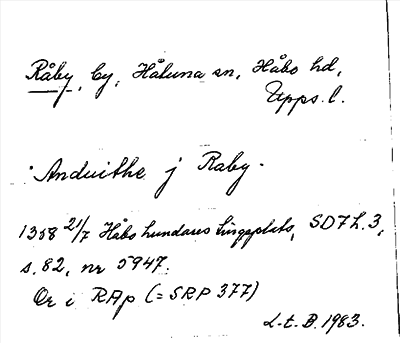 Råby, by, Håtuna sn, Håbo hd,
Upps. l.
"Anduithe j Raby"
1358 21/7 Håbo hundares tingsplats, SD 7 h. 3,
s. 82, nr 5947.
Or i RAp (= SRP 377)
L-t. B. 1983.